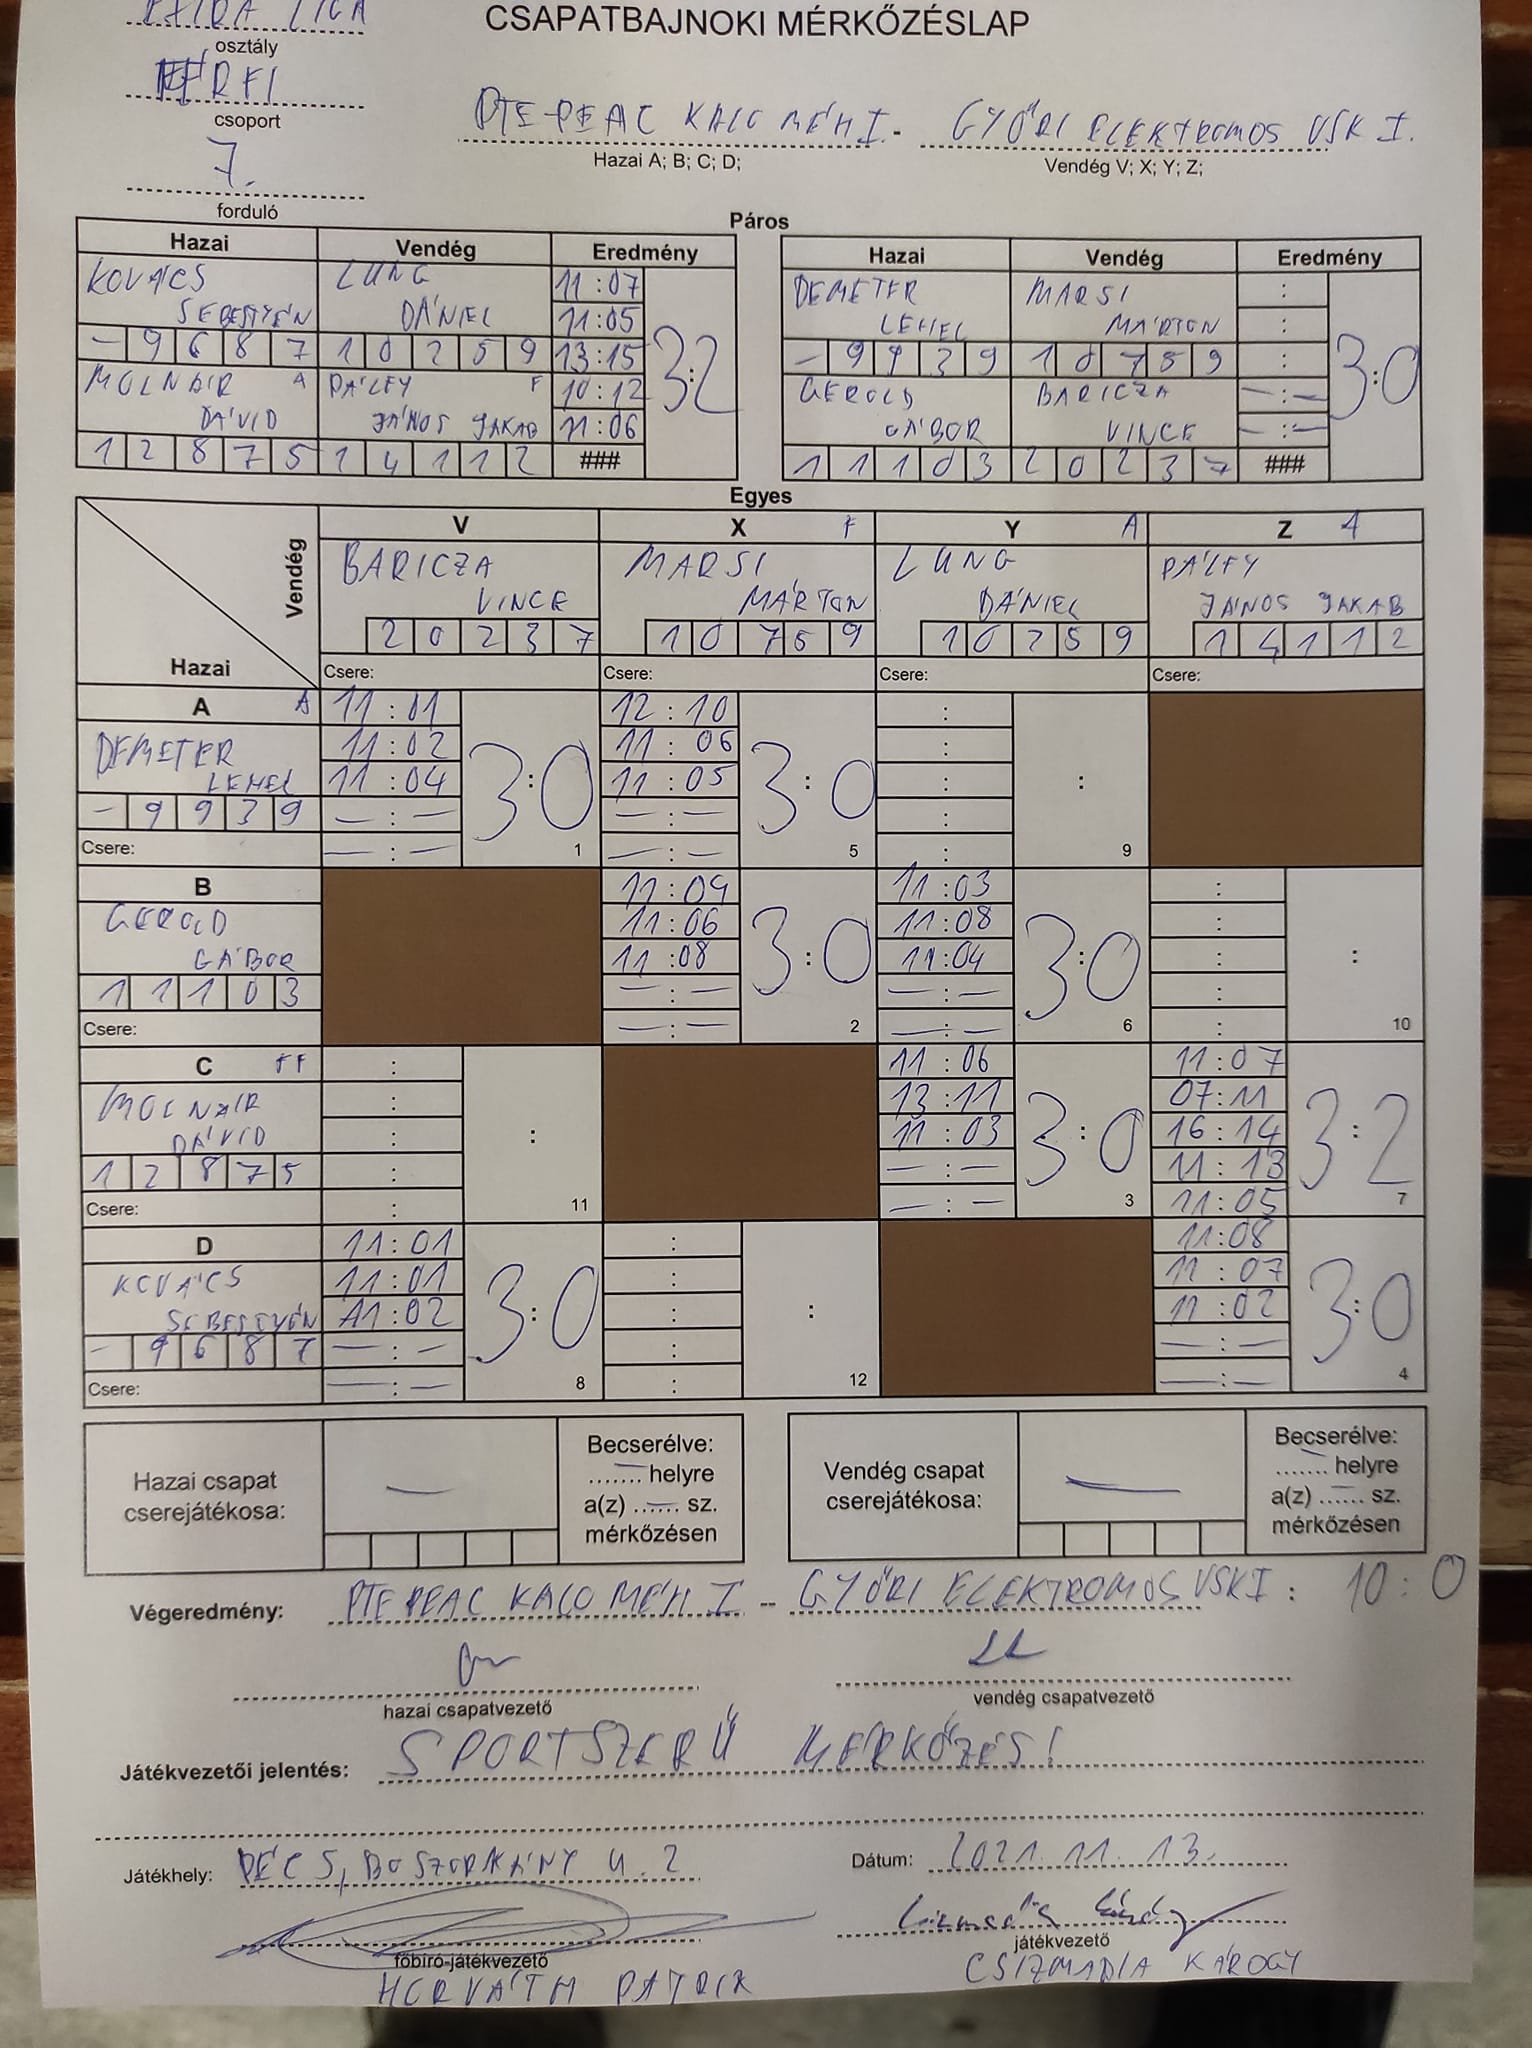 EXTRA LIGA
osztály
CSAPATBAJNOKI MÉRKŐZÉSLAP
FÉRFI
csoport
PTE-PEAC KALO MÉH I. - GYŐRI ELEKTROMOS VSK I.
Hazai A; B; C; D; Vendég V; X; Y; Z;
7.
forduló
Páros
Hazai Vendég Eredmény
KOVÁCS SEBESTYÉN
- 9 6 8 7
LUNG DÁNIEL
1 0 2 5 9
MOLNÁR A DÁVID
1 2 8 7 5
PÁLFY F JÁNOS JAKAB
1 4 1 1 2
11 : 07
11 : 05
13 : 15
10 : 12
11 : 06
###
3 : 2
Hazai Vendég Eredmény
DEMETER LEHEL
- 9 9 3 9
MARSI MÁRTON
1 0 7 5 9
GEROLD GÁBOR
1 1 1 0 3
BARICZA VINCE
2 0 2 3 7
:
:
:
- : -
- : -
###
3 : 0
Egyes
Vendég
Hazai
V
BARICZA VINCE
2 0 2 3 7
Csere:
X F
MARSI MÁRTON
1 0 7 5 9
Csere:
Y A
LUNG DÁNIEL
1 0 2 5 9
Csere:
Z A
PÁLFY JÁNOS JAKAB
1 4 1 1 2
Csere:
A A
DEMETER LEHEL
- 9 9 3 9
Csere:
11 : 01
11 : 02
11 : 04
- : -
- : -
3 : 0
1
12 : 10
11 : 06
11 : 05
- : -
- : -
3 : 0
5
:
:
:
:
:
:
9
B
GEROLD GÁBOR
1 1 1 0 3
Csere:
11 : 09
11 : 06
11 : 08
- : -
- : -
3 : 0
2
11 : 03
11 : 08
11 : 04
- : -
- : -
3 : 0
6
:
:
:
:
:
:
10
C FF
MOLNÁR DÁVID
1 2 8 7 5
Csere:
:
:
:
:
:
:
11
11 : 06
13 : 11
11 : 03
- : -
- : -
3 : 0
3
11 : 07
07 : 11
16 : 14
11 : 13
11 : 05
3 : 2
7
D
KOVÁCS SEBESTYÉN
- 9 6 8 7
Csere:
11 : 01
11 : 01
11 : 02
- : -
- : -
3 : 0
8
:
:
:
:
:
:
12
11 : 08
11 : 07
11 : 02
- : -
- : -
3 : 0
4
Hazai csapat cserejátékosa: -
Becserélve:
... - ... helyre
a(z) ... - ... sz.
mérkőzésen
Vendég csapat cserejátékosa: -
Becserélve:
... - ... helyre
a(z) ... - ... sz.
mérkőzésen
Végeredmény: PTE PEAC KALO MÉH I -- GYŐRI ELEKTROMOS VSK I : 10 : 0
hazai csapatvezető vendég csapatvezető
Játékvezetői jelentés: SPORTSZERŰ MÉRKŐZÉS!
Játékhely: PÉCS, BOSZORKÁNY U. 2 Dátum: 2021. 11. 13.
főbíró-játékvezető játékvezető
HORVÁTH PATRIK CSIZMADIA KÁROLY